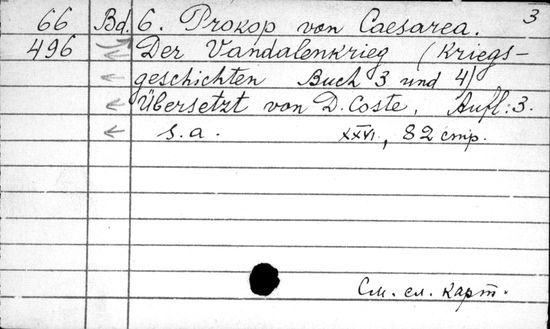 3
66 Bd. 6. Prokop von Caesarea.
496 Der Vandalenkrieg (Kriegs-
geschichten Buch 3 und 4)
Übersetzt von D. Coste, Aufl: 3.
s. a. XXVI, 82 стр.
См. сл. карт.